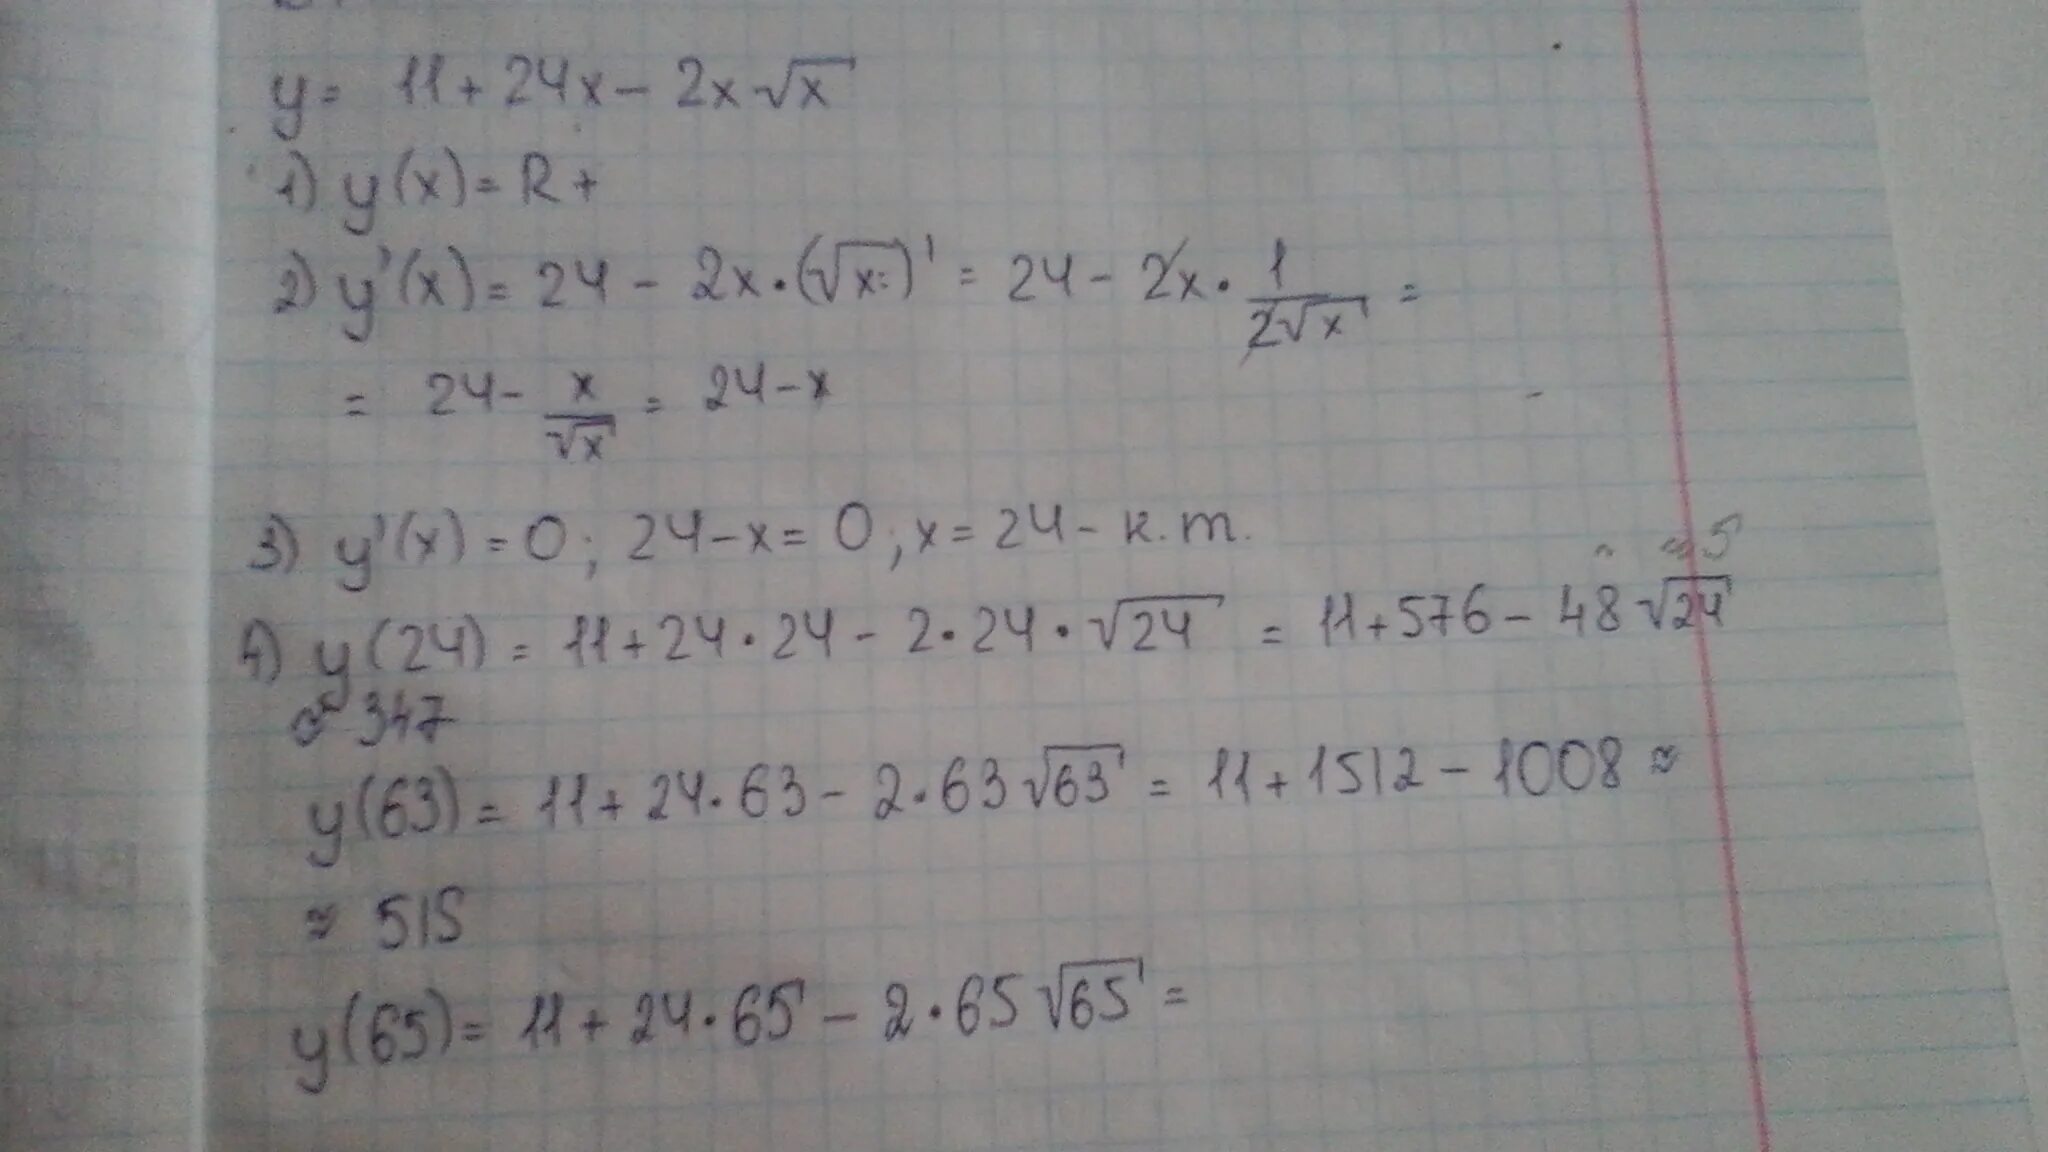 y = 11 + 24x - 2x√x
1) y(x) = R+
2) y'(x) = 24 - 2x·(√x)' = 24 - 2x · 1/(2√x) =
= 24 - x/√x = 24 - x
3) y'(x) = 0; 24 - x = 0; x = 24 - к.т.
≈ 5
4) y(24) = 11 + 24·24 - 2·24·√24 = 11 + 576 - 48√24
≈ 347
y(63) = 11 + 24·63 - 2·63√63 = 11 + 1512 - 1008 ≈
≈ 515
y(65) = 11 + 24·65 - 2·65√65 =